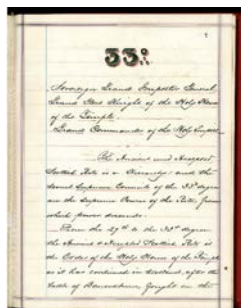 1
33º
Sovereign Grand Inspector General,
Grand Elect Knight of the Holy House
of the Temple.
Grand Commander of the Holy
The Ancient and Accepted
Scottish Rite is a and the
Supreme Councils of the 33rd degree
are the Supreme Powers of the Rite, from
which power descends.
From the to the 32nd degree
the Ancient & Accepted Scottish Rite is
the Order of the Holy House of the Temple
as it has continued in Scotland, after the
battle of Bannockburn, fought on the